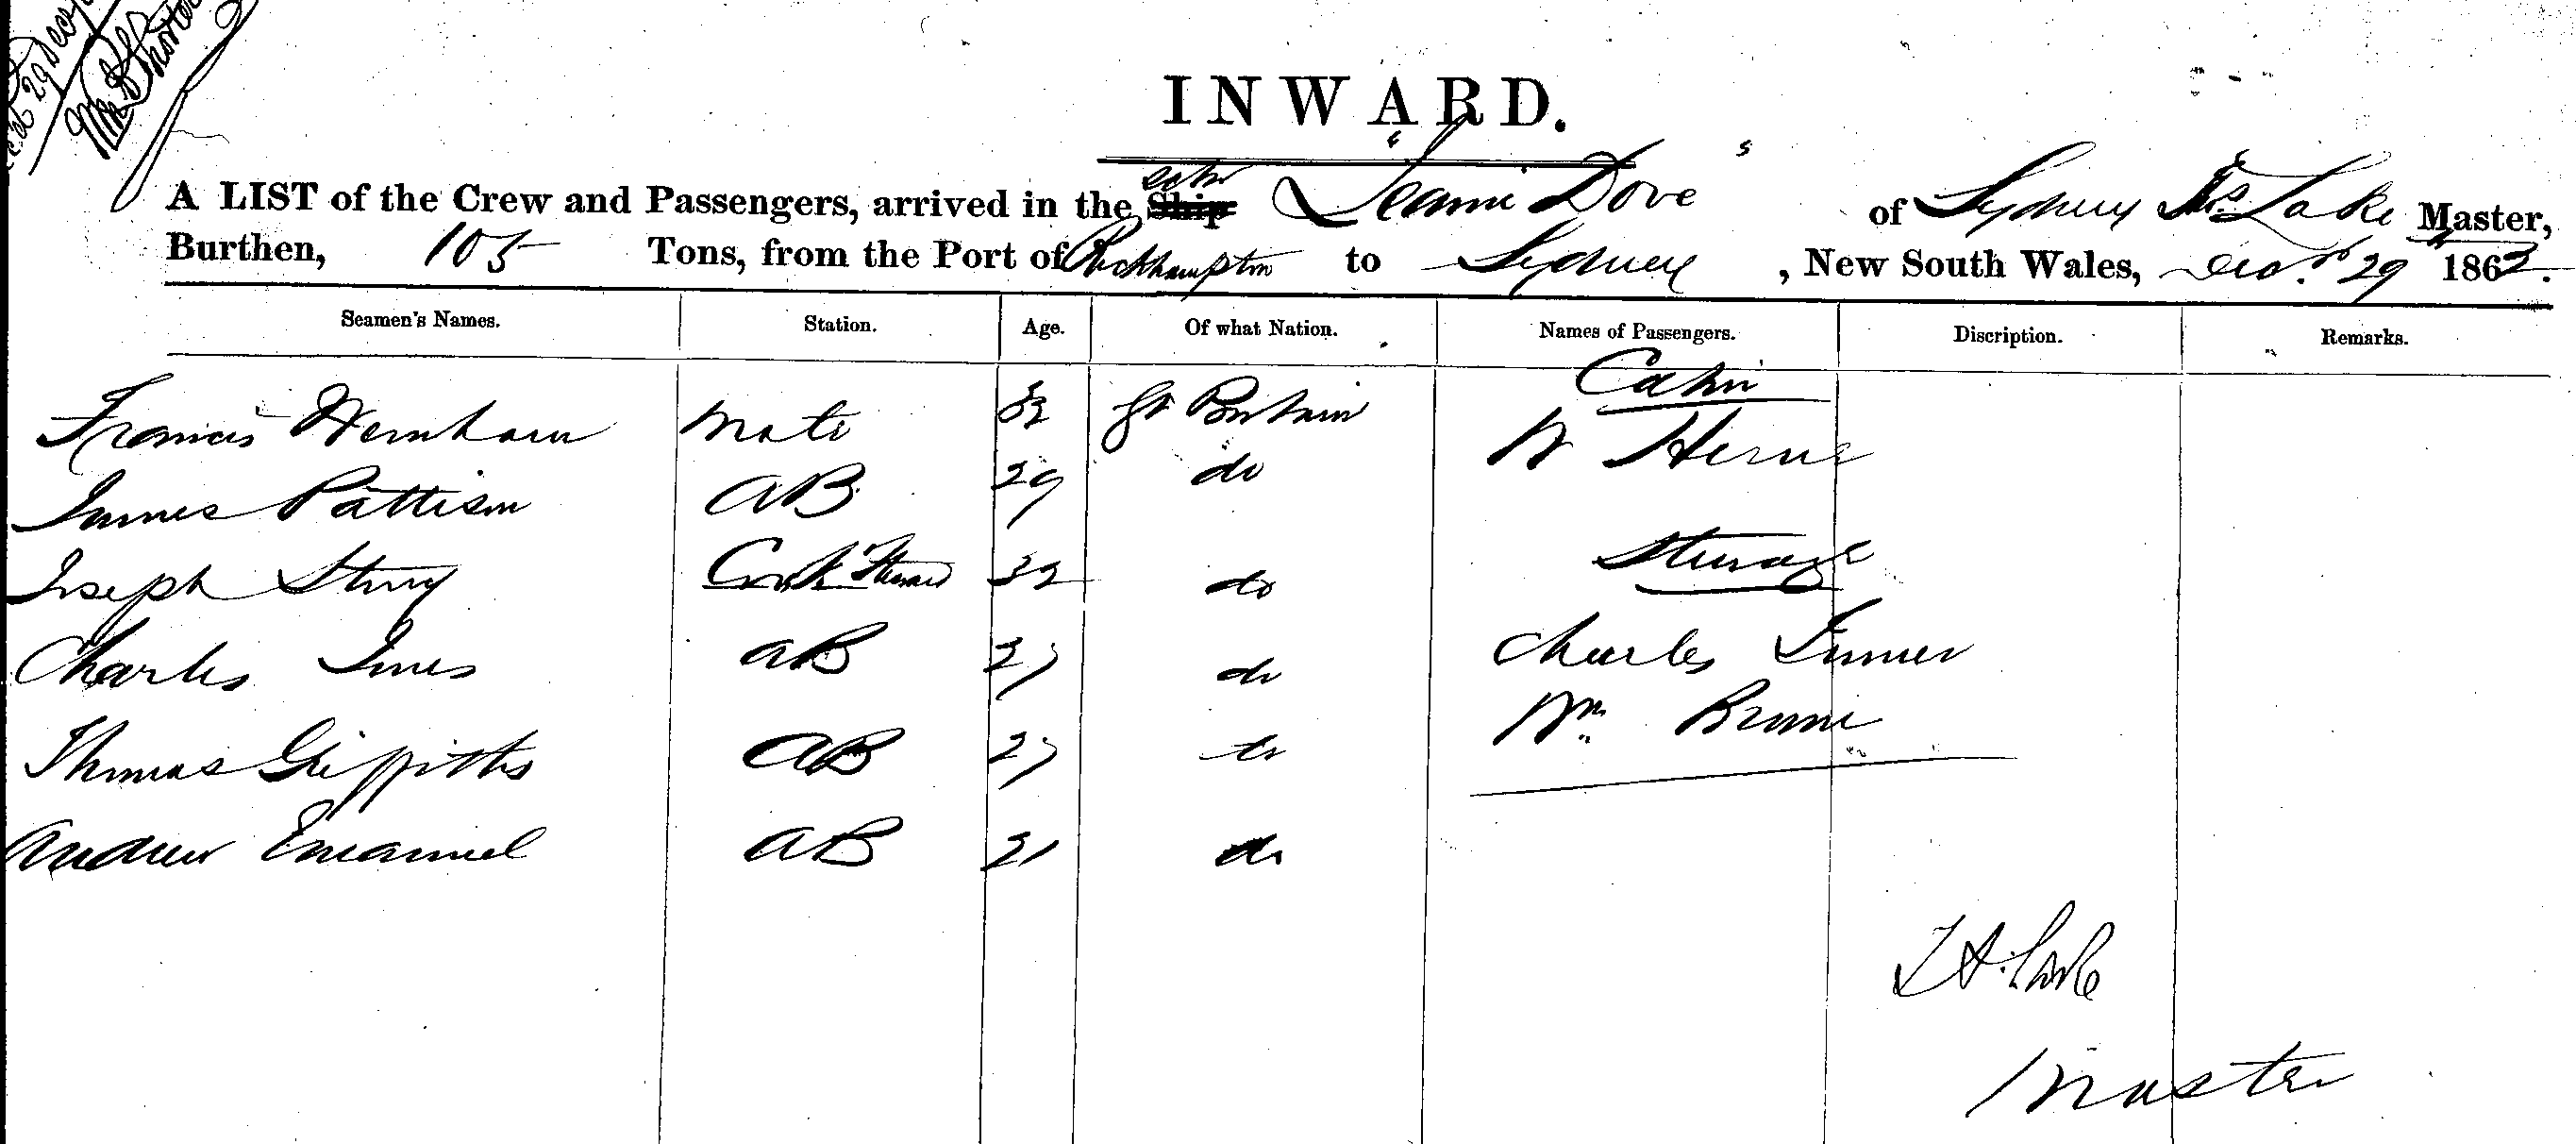 29 Decr
INWARD.
A LIST of the Crew and Passengers, arrived in the schr Ship "Jeanie Dove" of Sydney Lake Master,
Burthen, 105 Tons, from the Port of Rockhampton to Sydney, New South Wales, Decr. 29th 1862.
Seamen's Names. Station. Age. Of what Nation. Names of Passengers. Discription. Remarks.
Cabin
Francis Wernham Mate 32 Gt Britain W Herne
James Pattison AB 29 do
Joseph Cook Steward 32 do Steerage
Charles AB 27 do Charles
Thomas Griffiths AB 27 do Wm
Andrew Emanuel AB 21 do
Lake
Master